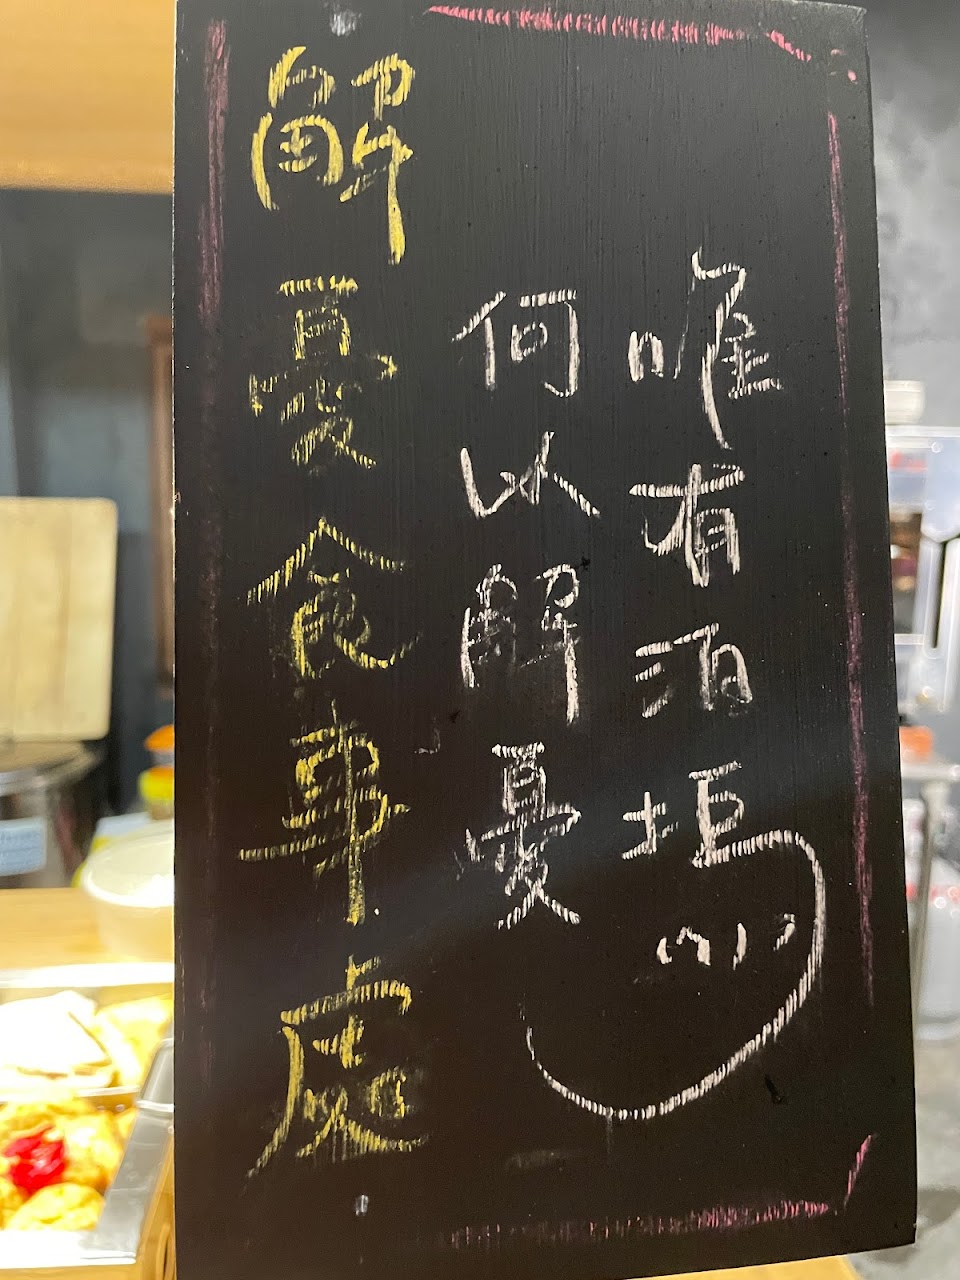 解憂食事處
何以解憂
唯有酒塢